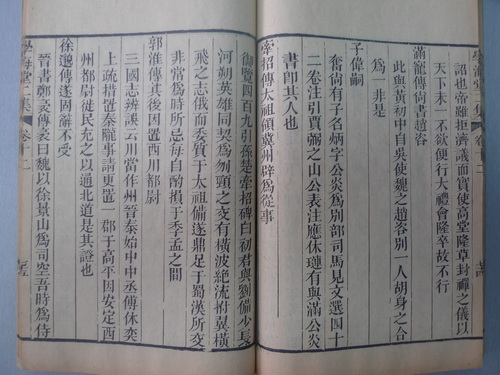 詔也帝雖拒濟議而實使高堂隆草封禪之儀以
天下未一不欲便行大禮會隆卒故不行
滿寵傳尚書趙咨
此與黃初中自吳使魏之趙咨別一人胡身之合
爲一非是
子偉嗣
奮尚有子名炳字公炎爲別部司馬見文選四十
二卷注引賈弼之山公表注應休璉有與滿公炎
書即其人也
牽招傳太祖領冀州辟爲從事
御覽四百九引孫楚牽招碑曰初君與劉備少長
河朔英雄同契爲刎頸之交有橫波絶流拊翼橫
飛之志俄而委質于太祖備遂鼎足于蜀漢所交
非常爲時所忌每自酌損于季孟之間
郭淮傳其後因置西川都尉
三國志辨誤云川當作州晉泰始中中丞傅休奕
上疏措置秦隴事請更置一郡于高平因安定西
州都尉徙民充之以通北道是其證也
徐邈傳遂固辭不受
晉書鄭袤傳袤曰魏以徐景山爲司空吾時爲侍
學海堂二集 卷十二